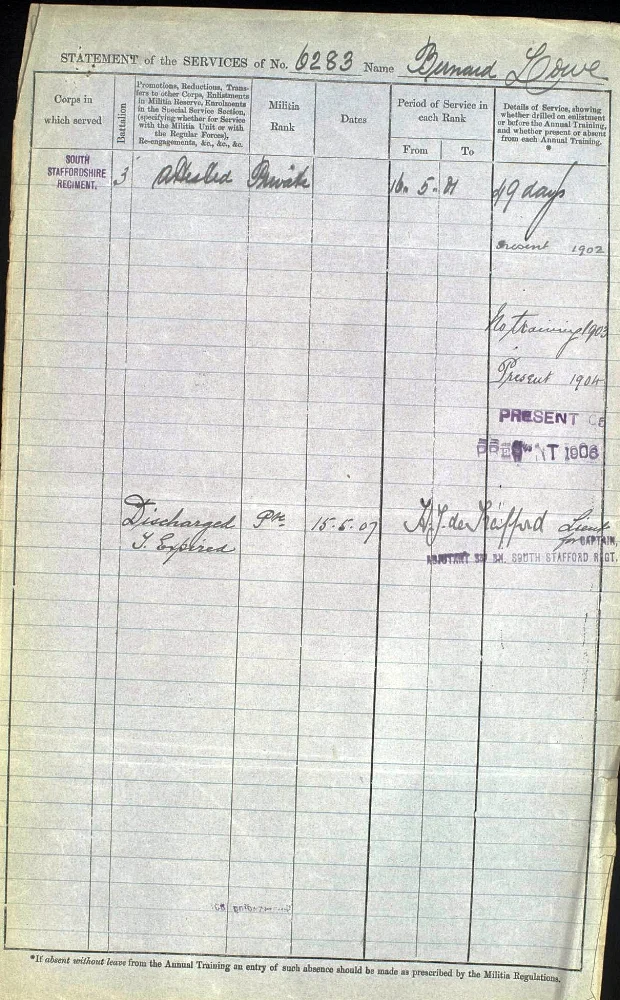 STATEMENT of the SERVICES of No. 6283 Name Bernard Lowe
Corps in
which served
Battalion
Promotions, Reductions, Trans-
fers to other Corps, Enlistments
in Militia Reserve, Enrolments
in the Special Service Section,
(specifying whether for Service
with the Militia Unit or with
the Regular Forces),
Re-engagements, &c., &c., &c.
Militia
Rank
Dates
Period of Service in
each Rank
From To
Details of Service, showing
whether drilled on enlistment
or before the Annual Training,
and whether present or absent
from each Annual Training.
*
SOUTH
STAFFORDSHIRE
REGIMENT.
3 attested Private 5. 49 days
Present 1902
No training 1903
Present 1904
PRESENT
1906
Discharged Pte 15.5.07 Lieut
T. Expired for CAPTAIN,
ADJUTANT 3RD BN. SOUTH STAFFORD REGT.
*If absent without leave from the Annual Training an entry of such absence should be made as prescribed by the Militia Regulations.